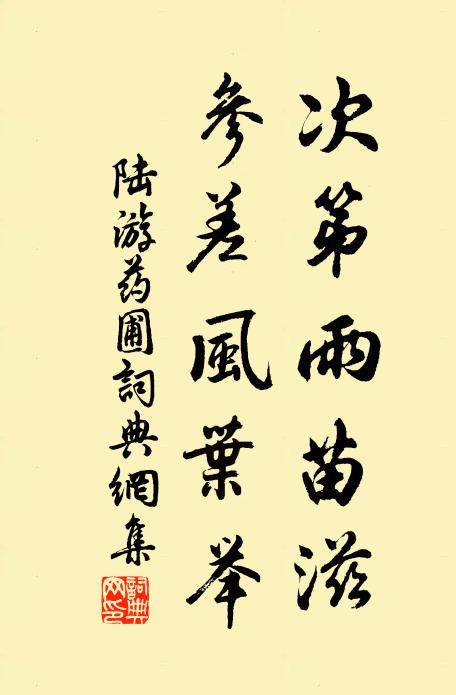 次第雨苗滋
參差風葉举
陆游药圃詞典網集
詞典網印